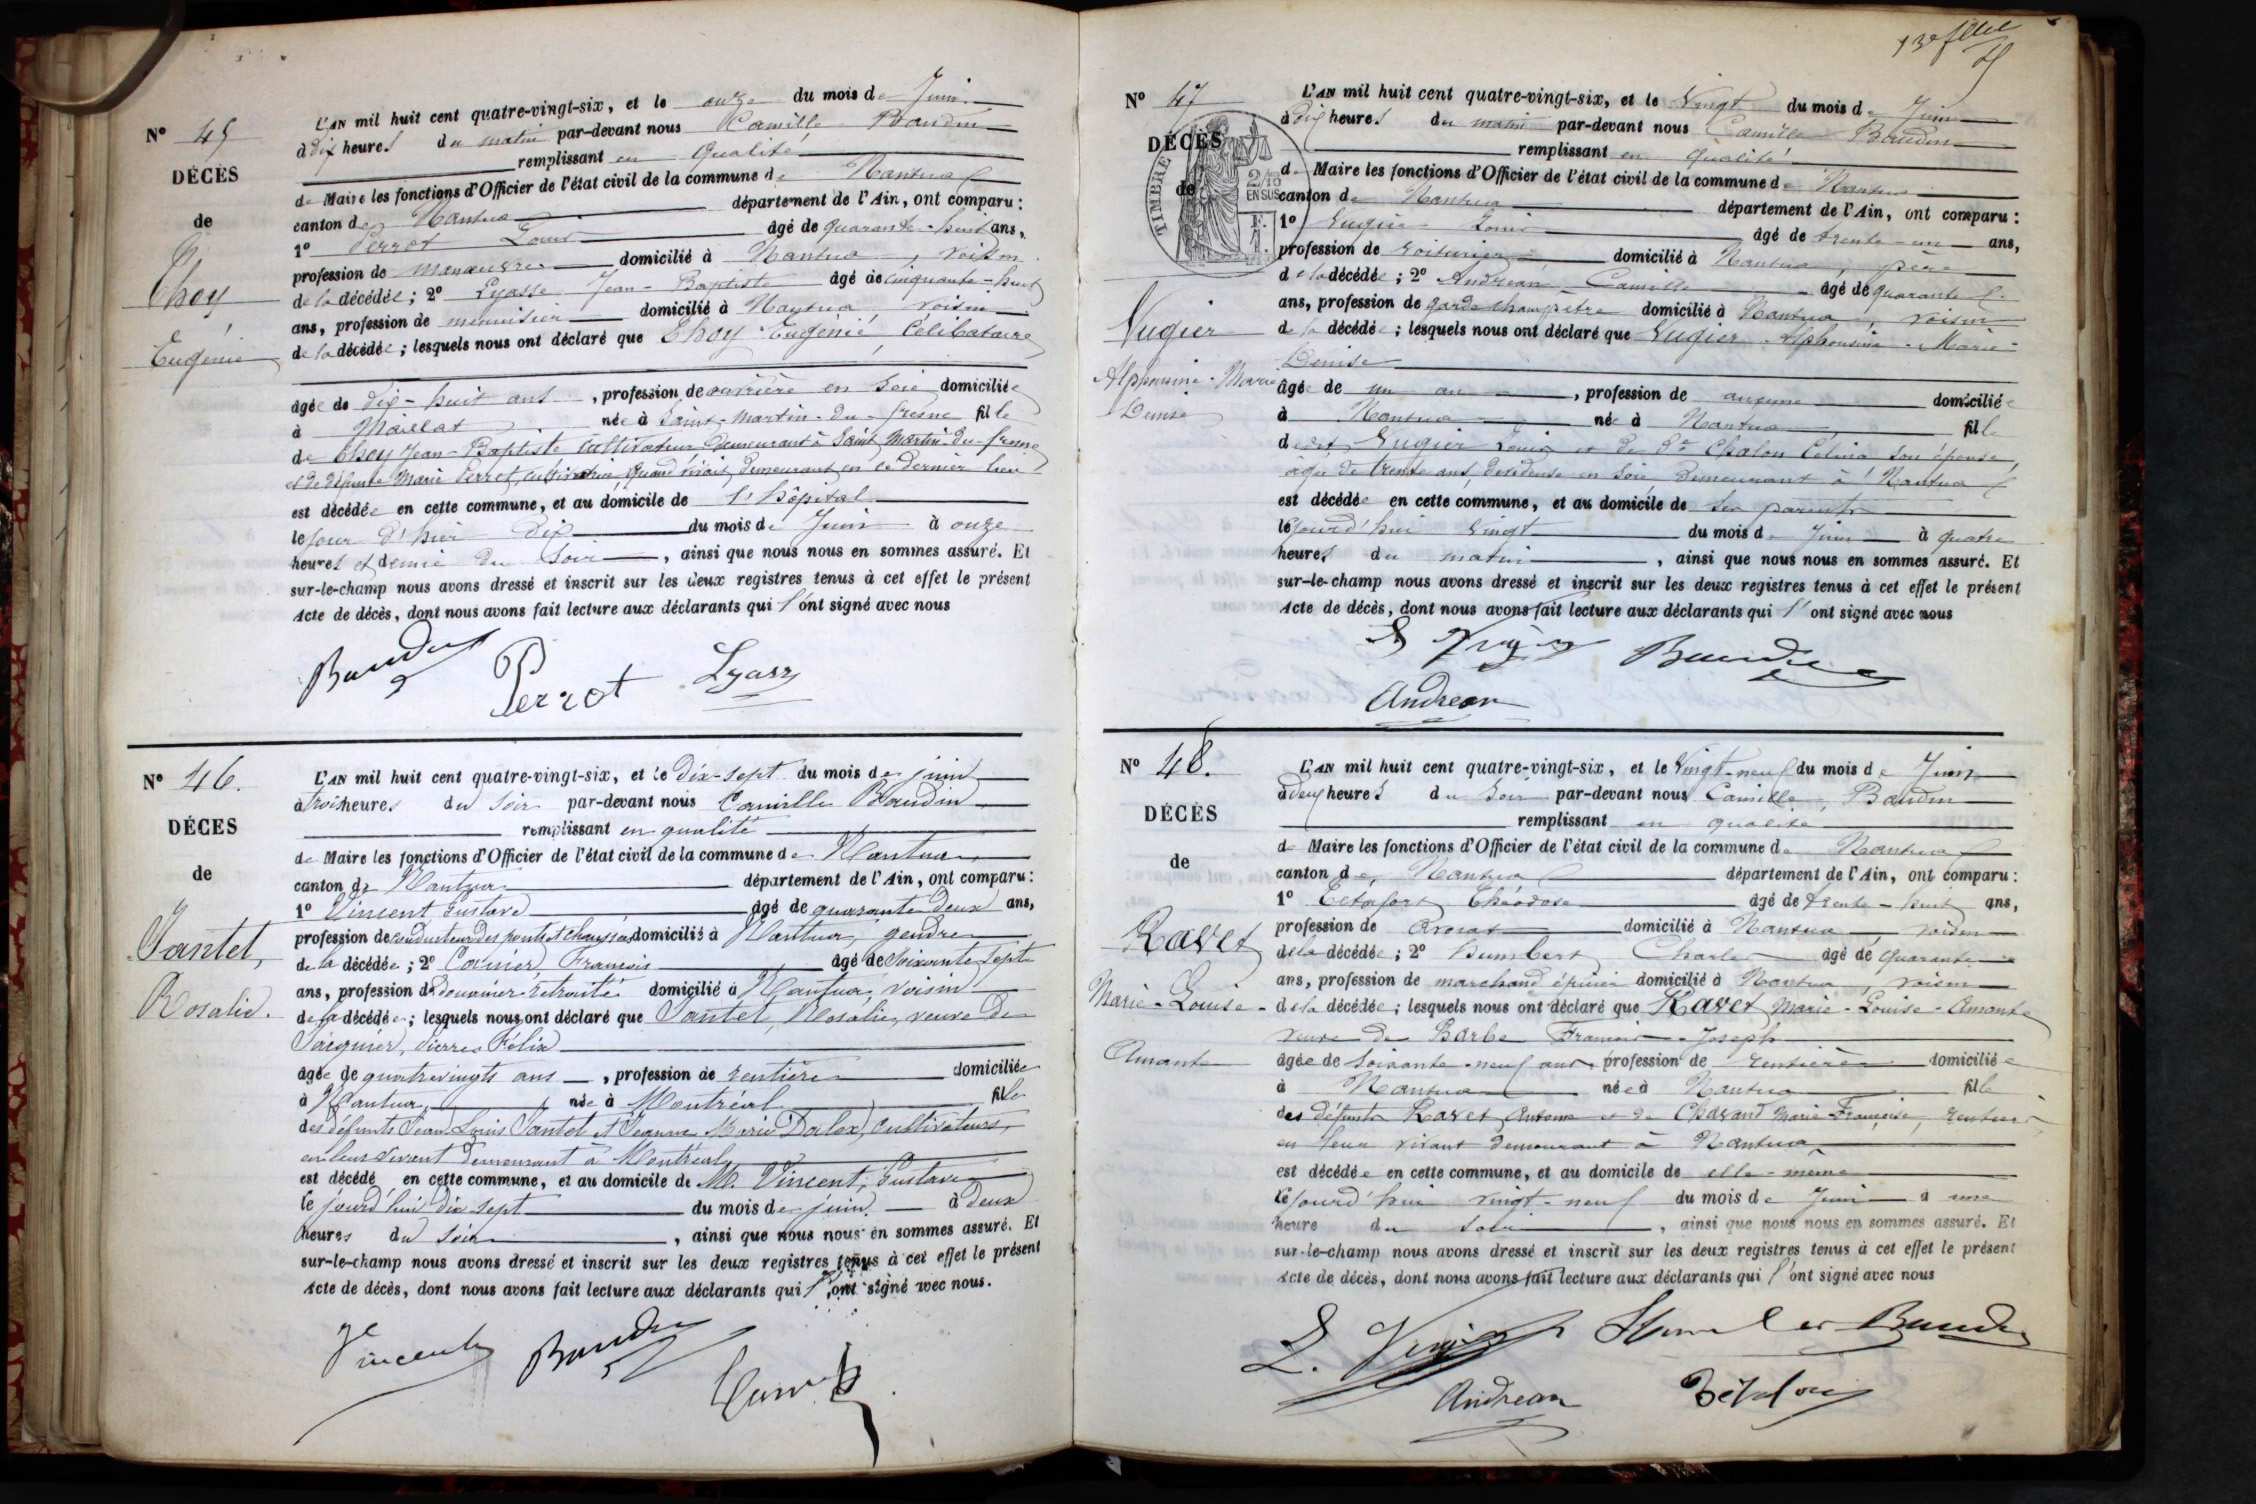 N° 45
DÉCÈS
de
Choy
Eugénie
L'AN mil huit cent quatre-vingt-six, et le onze du mois de Juin
à dix heures du matin par-devant nous Camille Baudin
remplissant en qualité
de Maire les fonctions d'Officier de l'état civil de la commune de Nantua
canton de Nantua département de l'Ain, ont comparu :
1° Perrot Louis âgé de quarante-huit ans,
profession de manœuvre domicilié à Nantua, voisin
de la décédée ; 2° Lyasse Jean-Baptiste âgé de cinquante-huit
ans, profession de menuisier domicilié à Nantua voisin
de la décédée ; lesquels nous ont déclaré que Choy Eugénie, Célibataire
âgée de dix-huit ans, profession de ouvrière en soie domiciliée
à Maillat née à Saint-Martin-du-fresne fille
de Choy Jean-Baptiste cultivateur demeurant à Saint Martin-du-fresne
et de défunte Marie Perret, cultivatrice, quand vivait, demeurant en ce dernier lieu
est décédée en cette commune, et au domicile de l'hôpital
le jour d'hier dix du mois de Juin à onze
heures et demie du soir, ainsi que nous nous en sommes assuré. Et
sur-le-champ nous avons dressé et inscrit sur les deux registres tenus à cet effet le présent
Acte de décès, dont nous avons fait lecture aux déclarants qui l'ont signé avec nous
Baudin Perrot Lyasse
N° 46.
DÉCES
de
Jantet,
Rosalie.
L'AN mil huit cent quatre-vingt-six, et le dix-sept du mois de juin
à trois heures du soir par-devant nous Camille Baudin
remplissant en qualité
de Maire les fonctions d'Officier de l'état civil de la commune de Nantua
canton de Nantua département de l'Ain, ont comparu :
1° Vincent Gustave âgé de quarante deux ans,
profession de conducteur des ponts et chaussées domicilié à Nantua, gendre
de la décédée ; 2° François âgé de soixante sept
ans, profession de douanier retraité domicilié à Nantua, voisin
de la décédée ; lesquels nous ont déclaré que Jantet, Rosalie, veuve de
Jacquier, Pierre Félix
âgée de quatrevingts ans, profession de rentière domiciliée
à Nantua, née à Montréal fille
des défunts Jean Louis Jantet et Jeanne Marie Dalex, cultivateurs,
en leur vivant demeurant à Montréal,
est décédé en cette commune, et au domicile de M. Vincent, Gustave
le jourd'hui dix sept du mois de juin à deux
heures du soir, ainsi que nous nous en sommes assuré. Et
sur-le-champ nous avons dressé et inscrit sur les deux registres tenus à cet effet le présent
Acte de décès, dont nous avons fait lecture aux déclarants qui l'ont signé avec nous.
Vincent Baudin
13e feuillet
N° 47
DÉCÈS
de
TIMBRE
2/10
EN SUS
F.
1.
Vugier
Alphonsine-Marie
Denise
L'AN mil huit cent quatre-vingt-six, et le Vingt du mois de Juin
à dix heures du matin par-devant nous Camille Baudin
remplissant en qualité
de Maire les fonctions d'Officier de l'état civil de la commune de Nantua
canton de Nantua département de l'Ain, ont comparu :
1° Vugier Louis âgé de trente-un ans,
profession de voiturier domicilié à Nantua, père
de la décédée ; 2° Andrean Camille âgé de quarante
ans, profession de garde champêtre domicilié à Nantua, voisin
de la décédée ; lesquels nous ont déclaré que Vugier Alphonsine-Marie-
Denise
âgée de un an, profession de aucune domiciliée
à Nantua née à Nantua fille
de Vugier Louis et de De Chalon Célina son épouse,
âgée de trente ans, dévideuse en soie demeurant à Nantua
est décédée en cette commune, et au domicile de ses parents
le jourd'hui vingt du mois de Juin à quatre
heures du matin, ainsi que nous nous en sommes assuré. Et
sur-le-champ nous avons dressé et inscrit sur les deux registres tenus à cet effet le présent
Acte de décès, dont nous avons fait lecture aux déclarants qui l'ont signé avec nous
L Vugier Baudin
Andrean
N° 48.
DÉCÈS
de
Ravet
Marie-Louise-
Amante
L'AN mil huit cent quatre-vingt-six, et le Vingt-neuf du mois de Juin
à deux heures du soir par-devant nous Camille Baudin
remplissant en qualité
de Maire les fonctions d'Officier de l'état civil de la commune de Nantua
canton de Nantua département de l'Ain, ont comparu :
1° Théodose âgé de trente-huit ans,
profession de avocat domicilié à Nantua, voisin
de la décédée ; 2° Humbert Charles âgé de quarante
ans, profession de marchand épicier domicilié à Nantua, voisin
de la décédée ; lesquels nous ont déclaré que Ravet Marie-Louise-Amante
veuve de Barbe François-Joseph
âgée de soixante-neuf ans profession de rentière domiciliée
à Nantua née à Nantua fille
des défunts Ravet Antoine et de Chavand Marie Françoise, rentiers
en leur vivant demeurant à Nantua
est décédée en cette commune, et au domicile de elle-même
le jourd'hui vingt-neuf du mois de Juin à une
heure du soir, ainsi que nous nous en sommes assuré. Et
sur-le-champ nous avons dressé et inscrit sur les deux registres tenus à cet effet le présent
Acte de décès, dont nous avons fait lecture aux déclarants qui l'ont signé avec nous
L. Vugier Humbert Baudin
Andrean